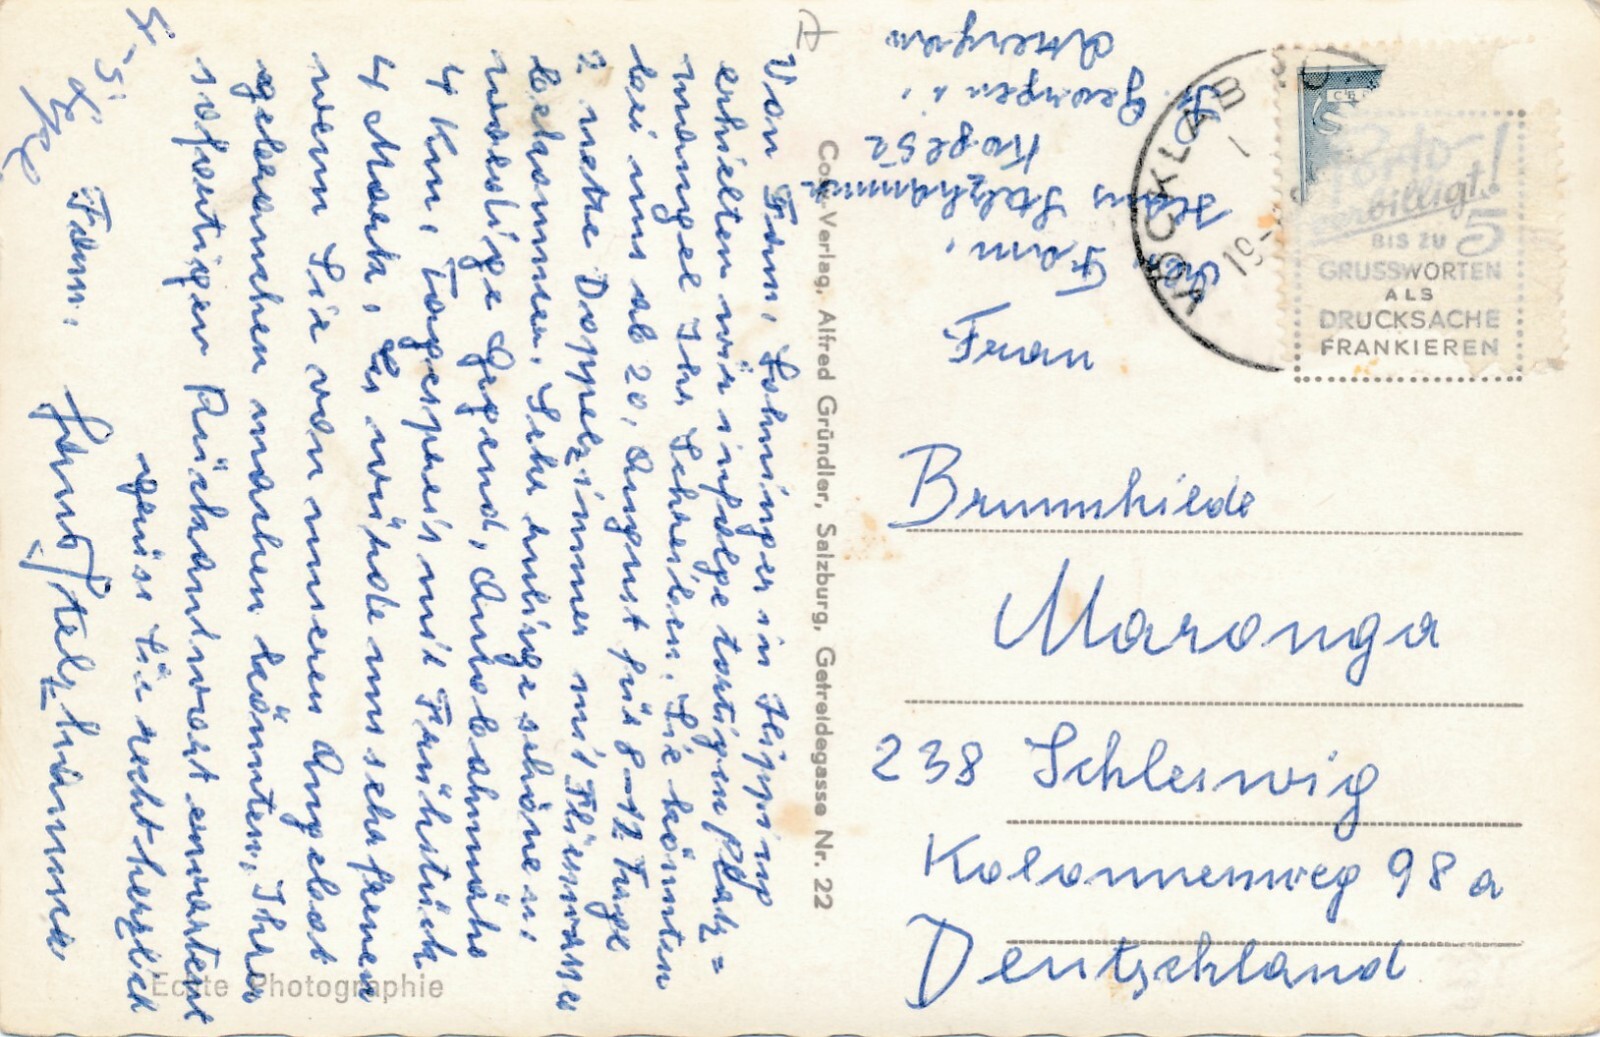 Von Fam. Lohninger in Hipping
erhielten wir infolge dortigen Platz=
mangel Ihr Schreiben. Sie könnten
bei uns ab 20. August für 8-12 Tage
2 nette Doppelzimmer mit Fliesswasser
bekommen. Sehr ruhige schöne u.
waldige Gegend, Autobahnnähe
4 Km, Tagespreis mit Frühstück
4 Mark. Es würde uns sehr freuen
wenn Sie von unseren Angebot
gebrauchen machen könnten. Ihrer
sofortigen Rückantwort erwartend
grüsst Sie recht herzlich
Fam. Hans Stelzhammer
Abs. Fam.
Hans Stelzhammer
Kogl 52
St. Georgen i.
Attergau
Cosy-Verlag, Alfred Gründler, Salzburg, Getreidegasse Nr. 22
Echte Photographie
VÖCKLAB
19
Porto-
verbilligt!
BIS ZU 5
GRUSSWORTEN
ALS
DRUCKSACHE
FRANKIEREN
Frau
Brunnhilde
Maronga
238 Schleswig
Kolonnenweg 98a
Deutschland